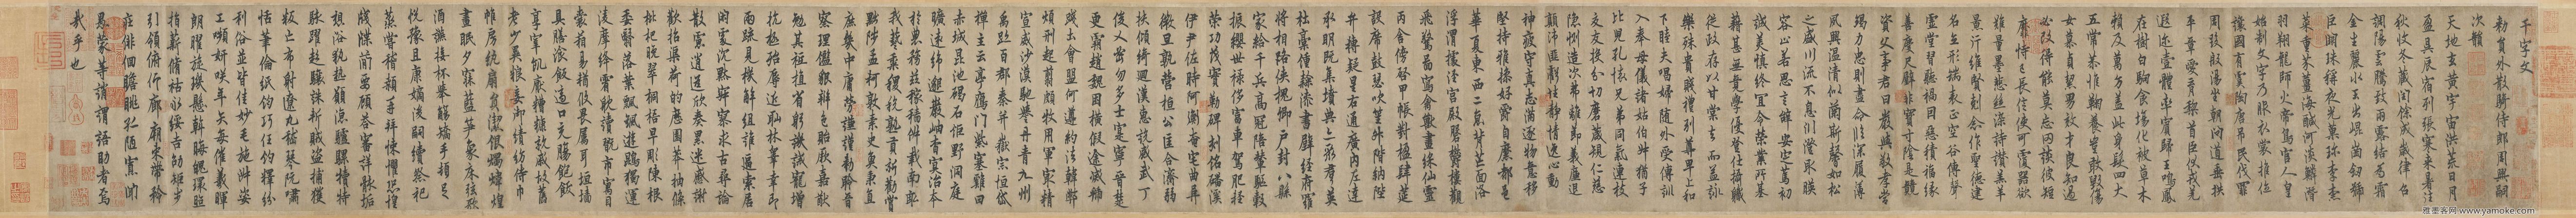 千字文
勑員外散騎侍郎周興嗣
次韻
天地玄黄宇宙洪荒日月
盈昃辰宿列張寒來暑往
秋收冬藏閏餘成歲律呂
調陽雲騰致雨露結為霜
金生麗水玉出崐崗劒號
巨闕珠稱夜光菓珍李柰
菜重芥薑海鹹河淡鱗潜
羽翔龍師火帝鳥官人皇
始制文字乃服衣裳推位
讓國有虞陶唐弔民伐罪
周發殷湯坐朝問道垂拱
平章愛育黎首臣伏戎羌
遐迩壹體率賓歸王鳴鳳
在樹白駒食場化被草木
賴及萬方蓋此身髮四大
五常恭惟鞠養豈敢毀傷
女慕貞絜男效才良知過
必改得能莫忘罔談彼短
靡恃己長信使可覆器欲
難量墨悲絲染詩讚羔羊
景行維賢剋念作聖德建
名立形端表正空谷傳聲
虚堂習聽禍因惡積福緣
善慶尺璧非寶寸陰是競
資父事君曰嚴與敬孝當
竭力忠則盡命臨深履薄
夙興温凊似蘭斯馨如松
之盛川流不息淵澄取暎
容止若思言辭安定篤初
誠美慎終宜令榮業所基
藉甚無竟學優登仕攝職
從政存以甘棠去而益詠
樂殊貴賤禮別尊卑上和
下睦夫唱婦隨外受傅訓
入奉母儀諸姑伯叔猶子
比兒孔懷兄弟同氣連枝
交友投分切磨箴規仁慈
隱惻造次弗離節義廉退
顛沛匪虧性靜情逸心動
神疲守真志滿逐物意移
堅持雅操好爵自縻都邑
華夏東西二京背芒面洛
浮渭據涇宮殿盤欝樓觀
飛驚圖寫禽獸畫綵仙靈
丙舍傍啓甲帳對楹肆筵
設席鼓瑟吹笙升階納陛
弁轉疑星右通廣內左達
承明既集墳典亦聚羣英
杜稾鍾隸漆書壁經府羅
將相路俠槐卿户封八縣
家給千兵高冠陪輦驅轂
振纓世禄侈富車駕肥輕
策功茂實勒碑刻銘磻溪
伊尹佐時阿衡奄宅曲阜
微旦孰營桓公匡合濟弱
扶傾綺迴漢惠說感武丁
俊乂密勿多士寔寧晉楚
更霸趙魏困横假途滅虢
踐土會盟何遵約法韓弊
煩刑起翦頗牧用軍最精
宣威沙漠馳譽丹青九州
禹跡百郡秦并嶽宗恒岱
禪主云亭鴈門紫塞雞田
赤城昆池碣石鉅野洞庭
曠遠緜邈巖岫杳冥治本
於農務兹稼穡俶載南畝
我藝黍稷稅熟貢新勸賞
黜陟孟軻敦素史魚秉直
庶幾中庸勞謙謹勑聆音
察理鑑貌辯色貽厥嘉猷
勉其祗植省躬譏誡寵增
抗極殆辱近恥林皋幸即
兩疏見機解組誰逼索居
閑處沉默寂寥求古尋論
散慮逍遥欣奏累遣慼謝
歡招渠荷的歷園莽抽條
枇杷晚翠梧桐早彫陳根
委翳落葉飄颻遊鵾獨運
凌摩絳霄耽讀翫市寓目
囊箱易輶攸畏屬耳垣牆
具膳湌飯適口充腸飽飫
享宰飢厭糟糠親戚故舊
老少異粮妾御績紡侍巾
帷房紈扇圓潔銀燭煒煌
晝眠夕寐藍笋象床弦歌
酒讌接杯舉觴矯手頓足
悦豫且康嫡後嗣續祭祀
蒸嘗稽顙再拜悚懼恐惶
牋牒簡要顧答審詳骸垢
想浴執熱願凉驢騾犢特
駭躍超驤誅斬賊盜捕獲
叛亡布射遼丸嵇琴阮嘯
恬筆倫紙鈞巧任釣釋紛
利俗並皆佳妙毛施淑姿
工嚬妍咲年矢每催羲暉
朗曜旋璣懸斡晦魄環照
指薪脩祜永綏吉劭矩步
引領俯仰廊廟束帶矜
莊徘徊瞻眺孤陋寡聞
愚蒙等誚謂語助者焉
哉乎也
雅墨客网 www.yamoke.com